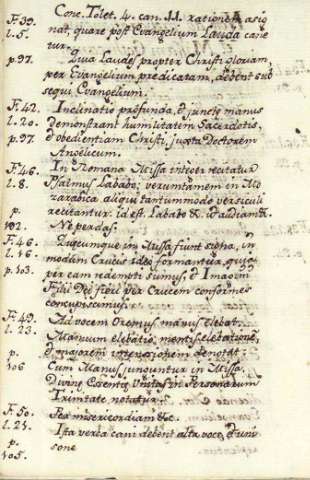 F. 39. Conc. Tolet. 4. can. 11. rationem asig
l. 5. nat, quare post Evangelium Lauda cane
tur.
p. 97. Quia Laudes, propter Christi gloriam,
per Evangelium predicatam, debent sub
sequi Evangelium.
F. 42. Inclinatio profunda, & junctæ manus
l. 20. demonstrant humilitatem Sacerdotis,
p. 97. & obedientiam Christi, juxta Doctorem
Angelicum.
F. 46. In Romana Missa integer recitatur
l. 8. Psalmus Lababo; verumtamen in Mo
zarabica aliqui tantummodo versiculi
p. recitantur. id est Lababo &. & audiam &.
102. Ne perdas:
F. 46. Quicumque in Missa fiunt signa, in
l. 16. modum Crucis ideo formantur, quia
p. 103. per eam redempti sumus, &
Filii Dei fieri per Crucem conformes
concupiscimus.
F. 49. Ad vocem Oremus manus elebat.
l. 23. Manuum elebatio, mentis elebationē,
p. & majorem denotat:
106 Cum Manus junguntur in Missa.
Divinæ Essentiæ Unitas in Personarum
Trinitate notatur.
F. 50. misericordiam &c.
l. 21. Ista verba cani debent alta voce, & uni
p. sone
105.